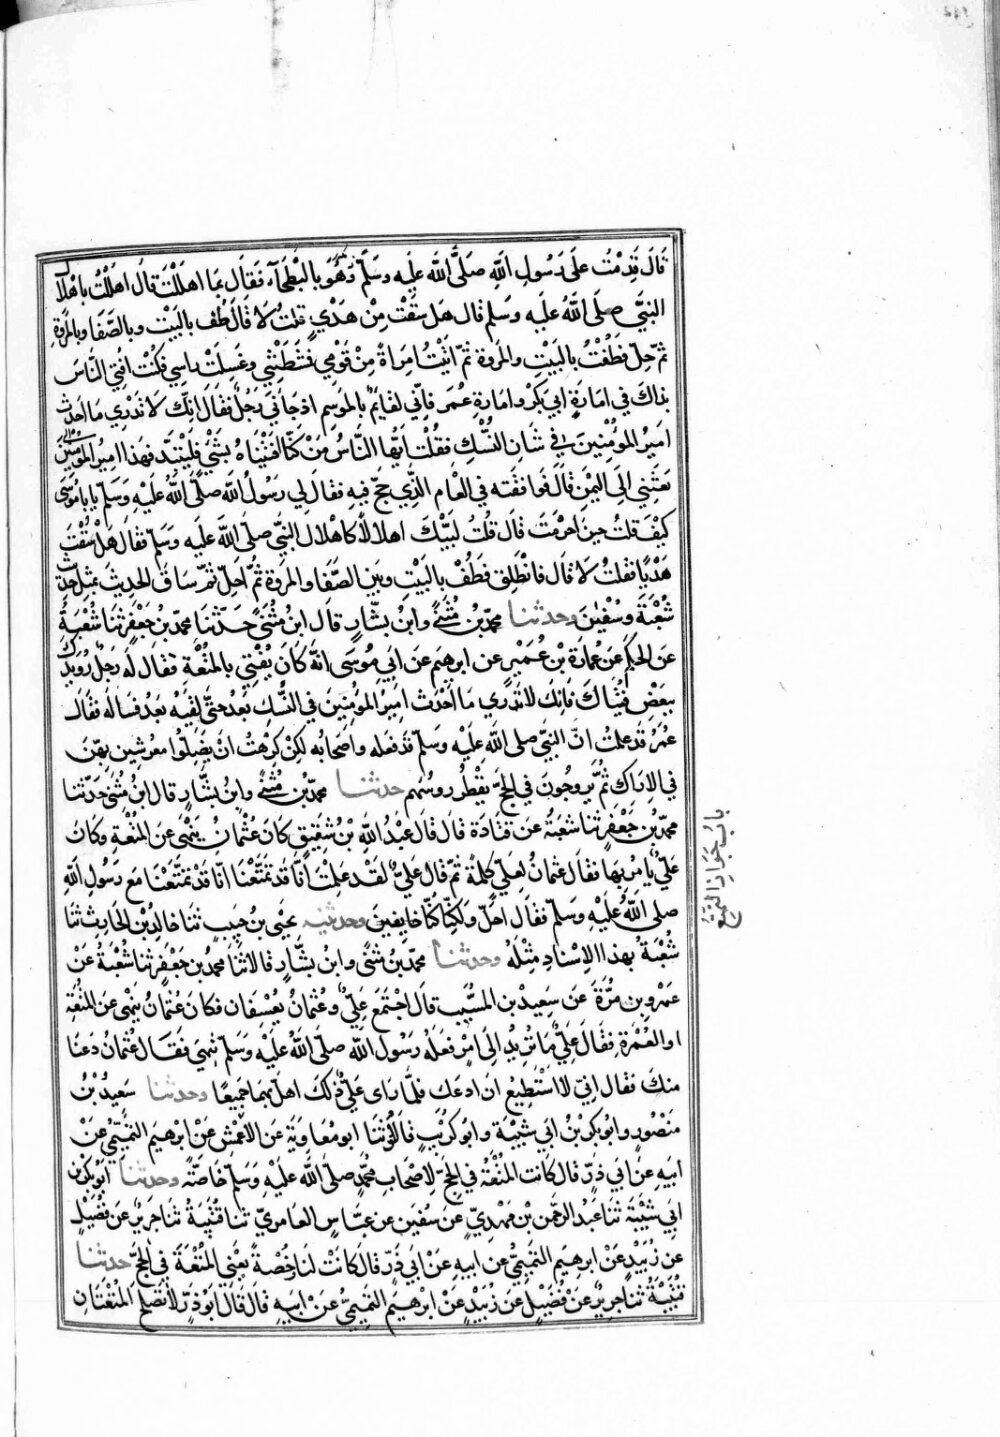 قَالَ قَدِمْتُ عَلَى رَسُولِ اللهِ صَلَّى الله عليه وسلم وَهُوَ بالبَطحآءِ فَقَال بمَا اهلَلْتَ قال اهلَلْتُ باهْلال
النبيّ صلى اللهُ عليه وسلم قال هَل سُقْتَ مِنْ هَدْيٍ قلتُ لا قَالَ طُف بالبَيْتِ وبالصَّفَا وبالمرْوَةِ
ثمّ حِلّ فطُفْتُ بالبَيْتِ والمروة ثمّ اتَيْتُ امرَاةً مِنْ قَوْمِي فمَشَطَتْنِي وغَسلَتْ راسِي فكنتُ افْتِي النَّاسَ
بذاكَ في امَارَةِ ابي بَكر وامَارةِ عمَر فإنّي لقايمٌ بالموسم اذ جآني رَجُلٌ فقَال انّك لا تَدْرِي مَا احدث
امير المؤمنين في شان النُسُكِ فقلْتُ ايّها النَّاسُ مَنْ كنّا افتَيْنَاهُ بشَئٍ فليَتئد فهذا امير المؤمنين
بَعَثَنِي الى اليَمَنِ قَالَ فَوَافَقْته في العَام الَّذِي حَجّ فيهِ فقال لي رَسُولُ الله صلّى اللهُ عَليْهِ وسلم يابا مُوسَى
كيْفَ قلتَ حينَ احرَمْتَ قال قلتُ لبَّيْكَ اهلالًا كاهْلال النبيّ صلى الله عليه وسلم فقال هلْ سُقْتَ
هَدْيًا فقلتُ لا قال فانطَلِق فَطُفْ بالبَيْتِ وبَين الصَّفَا والمروة ثمّ احِلّ ثمّ سَاقَ الحديثَ بمثل حديث
شُعْبَةَ وسُفْيٰن وحدثنا محمّد بن مُثَنّى وابنُ بشّارٍ قال ابنُ مثنّى حَدّثنَا محمد بن جَعْفَرٍ ثنَا شُعْبَةُ
عَنِ الحكم عَن عُمارَةَ بن عُمَيْرٍ عن ابرهيم عن ابي مُوسَى انّهُ كانَ يُفتي بالمُتْعَة فقال له رَجلٌ رُوَيْدَك
ببَعْضِ فتْيَاكَ فانكَ لا تدْرِي مَا احْدَثَ امِيرُ المُؤمِنين في النّسكِ بعدُ حتّى لقيَهُ بَعْدُ فسَالَه فقَالَ
عُمَرُ قد علمتُ انّ النبيّ صلى الله عليه وسلم قد فعله واصحابُه لكن كرهتُ انْ يَضَلّوا معرسِين بهنّ
في الاراكِ ثمّ يَرُوحُونَ في الحجّ يقْطُر روسُهم حدثنا محمّد بن مُثَنّى وابنُ بشّارٍ قال ابنُ مثنى حدّثنا
محمّد بن جَعْفَرٍ ثنا شعبَةُ عَن قتادَةَ قال قال عبْدُ اللهِ بنُ شقِيقٍ كان عُثمَانُ يَنْهى عَنِ المُتْعَةِ وكَانَ
عَليّ يَامُر بهَا فقَال عُثمانُ لِعَليٍّ كلِمَةً ثمّ قال عليٌّ لقَدْ عَلِمْتَ أنّا قد تمَتَّعْنَا انّا قَدْ تمتّعْنَا مَع رسُولِ الله
صلى اللهُ عَليْهِ وسلم فقال اجلْ ولكنّا كُنّا خايفينَ وحدثنيه يحيى بنُ حَبيبٍ ثنا خالدُ بن الحارِثِ ثنَا
شُعْبَةُ بهَذا الاِسْنادِ مِثْلَه وحدثنا محمّد بن مثنّى وابنُ بشّارٍ قالا ثنا محمدُ بن جَعْفَرٍ ثنا شُعْبَةُ عَنْ
عَمْرِو بن مُرَّةَ عَن سَعِيد بن المسَيَّبِ قال اجتَمَعَ عَليّ وعُثمَانُ بعُسْفَان فكان عُثمانُ يَنهى عَن المُتْعَةِ
او العُمْرَةِ فقَال عليٌّ مَا تريدُ الى امْرٍ فَعلَهُ رَسُولُ الله صلّى اللهُ عَليْهِ وَسَلم تَنهَى فقَال عُثمانُ دعنَا
منكَ فقال إنيّ لا استَطِيعُ انْ ادعَكَ فلمّا راى عَليٌّ ذلكَ اهلّ بهِمَا جميعًا وحدثنا سَعِيدُ بْنُ
مَنصُورٍ وابُو بكر بنُ ابي شَيْبَةَ وابُو كُرَيْبٍ قالُوا ثنا ابو مُعَاويَة عن الاعْمشِ عن ابرهيم التيميّ عَن
ابيهِ عن ابي ذَرّ قال كانت المُتْعَةُ في الحجّ لِاصْحَابِ محمّدٍ صلى الله عليه وسلّم خاصّةً وحدثنا ابو بكر بن
ابي شَيْبَة ثنا عَبْدُ الرحمنِ بن مَهْدِيّ عَن سُفْيٰن عن عيّاشٍ العَامريّ ثنا قُتَيْبَةُ ثنا جريرٌ عَن فُضَيْلٍ
عن زُبَيْدٍ عنْ ابرهِيم التيميّ عن ابيهِ عَنْ ابي ذَرّ قال كانتْ لنا رُخْصةً يعْنِي المُتعَةَ في الحجّ حدثنا
قتَيْبَةُ ثنا جريرٌ عَنْ فُضَيْلٍ عَن زُبَيْدٍ عَنْ ابرهيم التيميّ عَنْ ابيهِ قال قَالَ ابُوذَرّ لا تصْلح المُتْعَتَانِ
بابُ جَوازِ التمتع